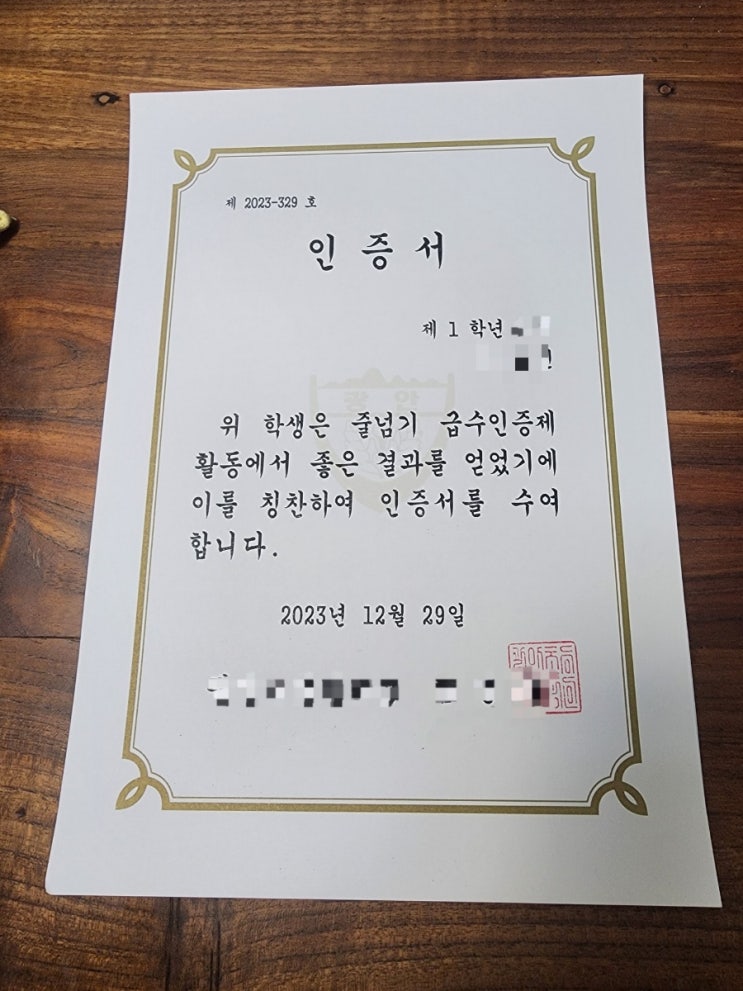 제 2023-329 호
인 증 서
제 1 학년
광 안
위 학생은 줄넘기 급수인증제
활동에서 좋은 결과를 얻었기에
이를 칭찬하여 인증서를 수여
합니다.
2023년 12월 29일